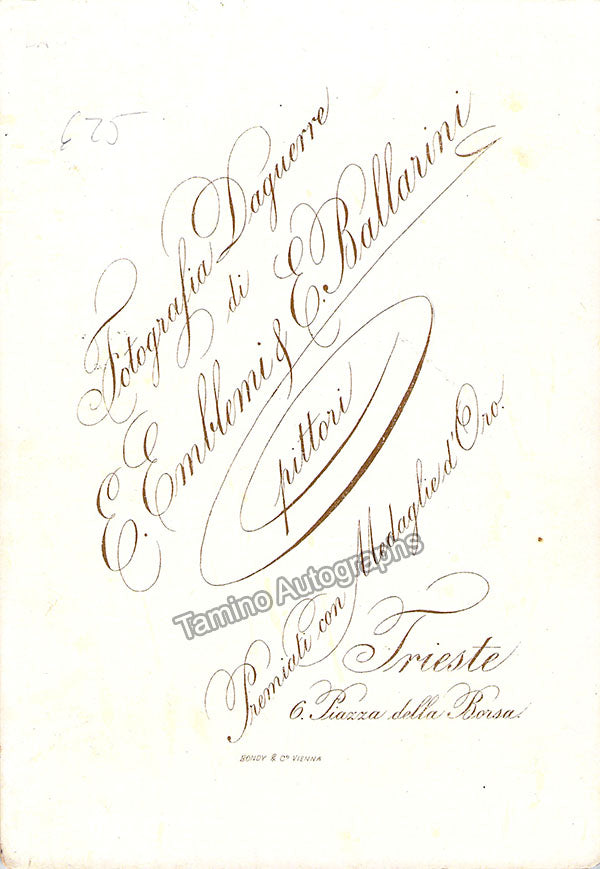 625
Fotografia Daguerre
di
E. Emblemi & E. Ballarini
pittori
Premiati con Medaglie d'Oro.
Tamino Autographs
Trieste
6. Piazza della Borsa.
BONDY & Co VIENNA